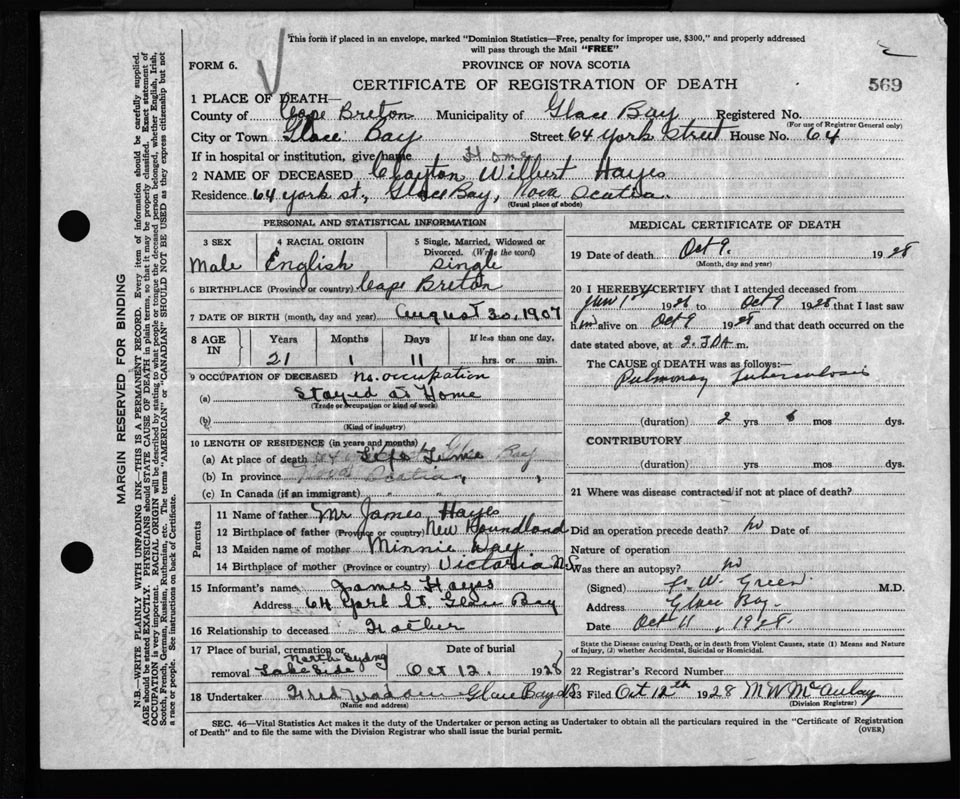 This form if placed in an envelope, marked "Dominion Statistics—Free, penalty for improper use, $300," and properly addressed
will pass through the Mail "FREE"
FORM 6.
PROVINCE OF NOVA SCOTIA
CERTIFICATE OF REGISTRATION OF DEATH
569
1 PLACE OF DEATH—
County of Cape Breton Municipality of Glace Bay Registered No.
(For use of Registrar General only)
City or Town Glace Bay Street 64 York Street House No. 64
If in hospital or institution, give name Home
2 NAME OF DECEASED Clayton Wilbert Hayes
Residence 64 York st, Glace Bay, Nova Scatia.
(Usual place of abode)
PERSONAL AND STATISTICAL INFORMATION
3 SEX
Male
4 RACIAL ORIGIN
English
5 Single, Married, Widowed or
Divorced. (Write the word)
Single
6 BIRTHPLACE (Province or country) Cape Breton
7 DATE OF BIRTH (month, day and year) August 30, 1907
8 AGE
IN
Years
21
Months
1
Days
11
If less than one day,
hrs. or min.
9 OCCUPATION OF DECEASED no. occupation
(a) Stayed at Home
(Trade or occupation or kind of work)
(b)
(Kind of industry)
10 LENGTH OF RESIDENCE (in years and months)
(a) At place of death Life Time Bay
(b) In province Scatia
(c) In Canada (if an immigrant) " "
Parents
11 Name of father Mr James Hayes
12 Birthplace of father (Province or country) New Foundland
13 Maiden name of mother Minnie Day
14 Birthplace of mother (Province or country) Victoria N.S
15 Informant's name James Hayes
Address 64 York St. Glace Bay
16 Relationship to deceased Father
17 Place of burial, cremation or
removal North Sydny
Lakeside
Date of burial
Oct 12. 1928
18 Undertaker Glace Bay N.S
(Name and address)
MEDICAL CERTIFICATE OF DEATH
19 Date of death Oct 9. 1928
(Month, day and year)
20 I HEREBY CERTIFY that I attended deceased from
1st 1926 to Oct 9 1928 that I last saw
him alive on Oct 9 1928 and that death occurred on the
date stated above, at m.
The CAUSE OF DEATH was as follows:—
Pulmonary Tuberculosis
(duration) 2 yrs 6 mos dys.
CONTRIBUTORY
(duration) yrs mos dys.
21 Where was disease contracted if not at place of death?
Did an operation precede death? no Date of
Nature of operation
Was there an autopsy? no
(Signed) W. Green M.D.
Address Glace Bay.
Date Oct 11, 1928.
State the Disease causing Death, or in death from Violent Causes, state (1) Means and Nature
of Injury, (2) whether Accidental, Suicidal or Homicidal.
22 Registrar's Record Number
23 Filed Oct 12th 1928 M W McAulay
(Division Registrar)
SEC. 46—Vital Statistics Act makes it the duty of the Undertaker or person acting as Undertaker to obtain all the particulars required in the "Certificate of Registration
of Death" and to file the same with the Division Registrar who shall issue the burial permit.
(OVER)
MARGIN RESERVED FOR BINDING
N.B.—WRITE PLAINLY WITH UNFADING INK—THIS IS A PERMANENT RECORD. Every item of information should be carefully supplied.
AGE should be stated EXACTLY. PHYSICIANS should STATE CAUSE OF DEATH in plain terms, so that it may be properly classified. Exact statement of
OCCUPATION is very important. RACIAL ORIGIN will be described by stating to what people or tongue the deceased person belonged, whether English, Irish,
Scotch, French, German, Russian, Ruthenian, etc. The terms "AMERICAN" or "CANADIAN" SHOULD NOT BE USED as they express citizenship but not
a race or people. See instructions on back of Certificate.